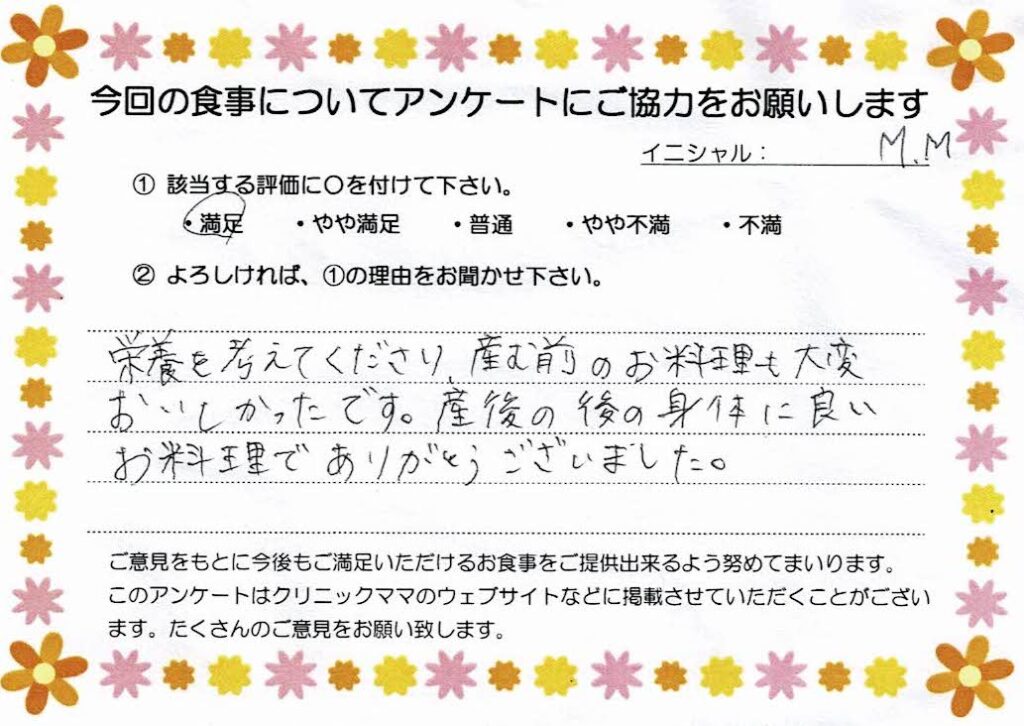 今回の食事についてアンケートにご協力をお願いします
イニシャル： M.M
① 該当する評価に○を付けて下さい。
・満足 ・やや満足 ・普通 ・やや不満 ・不満
② よろしければ、①の理由をお聞かせ下さい。
栄養を考えてくださり、産む前のお料理も大変
おいしかったです。産後の後の身体に良い
お料理でありがとうございました。
ご意見をもとに今後もご満足いただけるお食事をご提供出来るよう努めてまいります。
このアンケートはクリニックママのウェブサイトなどに掲載させていただくことがござい
ます。たくさんのご意見をお願い致します。